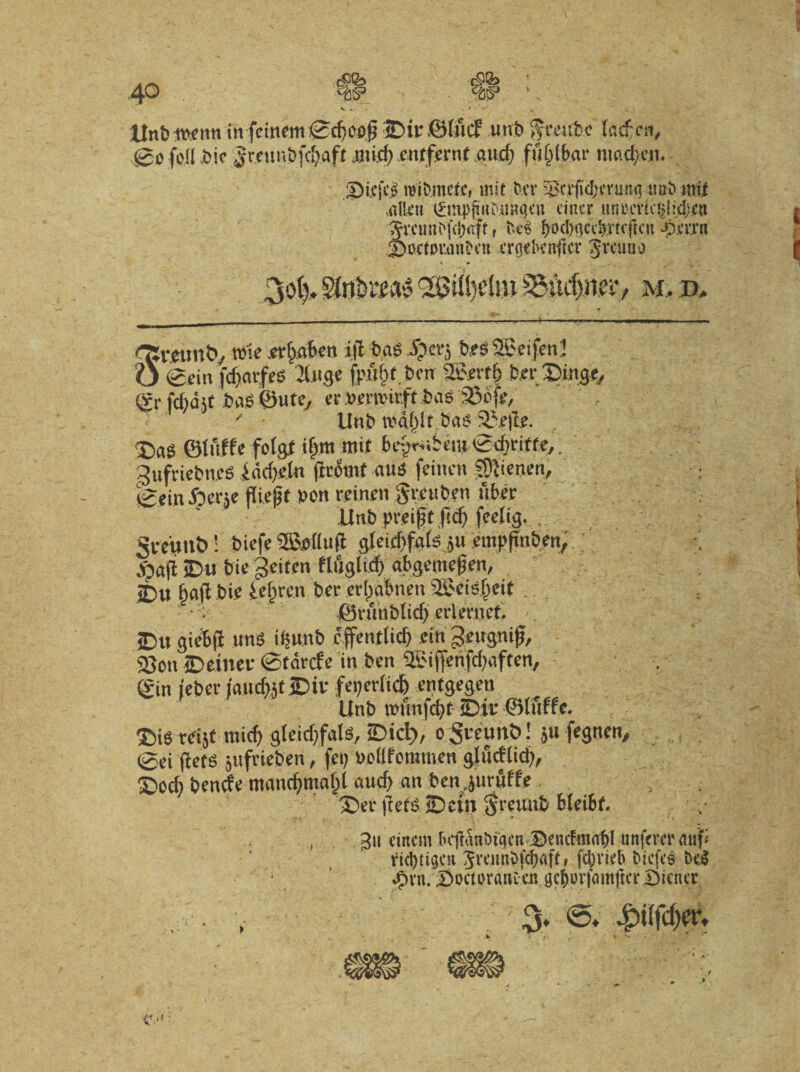 40
Und wenn in seinem Schooß Dir Glück und Freude lachen,
So soll die Freundschaft mich entfernt auch fühlbar machen.
Dieses widmete, mit der Versicherung und mit
allen Empfindungen einer unverletzlichen
Freundschaft, des hochgeehrtesten Herrn
Doctoranden ergebenster Freund
Joh. Andreas Wilhelm Büchner, M. D.
Freund, wie erhaben ist das Herz des Weisen!
Sein scharfes Auge spüht den Werth der Dinge,
Er schäzt das Gute, er verwirft das Böse,
Und wählt das Beste.
Das Glüffe folgt ihm mit behendem Schritte,
Zufriednes Lächeln strömt aus seinen Mienen,
Sein Herze fließt von reinen Freuden über
Und preißt sich seelig.
Freund! diese Wollust gleichfals zu empfinden,
Hast Du die Zeiten klüglich abgemeßen,
Du hast die Lehren der erhabnen Weisheit
Gründlich erlernet.
Du giebst uns itzund öffentlich ein Zeugniß,
Von Deiner Stärcke in den Wissenschaften,
Ein jeder jauchzt Dir feyerlich entgegen
Und wünscht Dir Glüffe.
Dis reizt mich gleichfals, Dich, o Freund! zu segnen,
Sei stets zufrieden, sey vollkommen glücklich,
Doch dencke manchmahl auch an den zurüffe
Der stets Dein Freund bleibt.
Zu einem beständigen Denckmahl unserer auf-
richtigen Freundschaft, schrieb dieses des
Hrn. Doctoranden gehorsamster Diener
J. S. Hilscher.